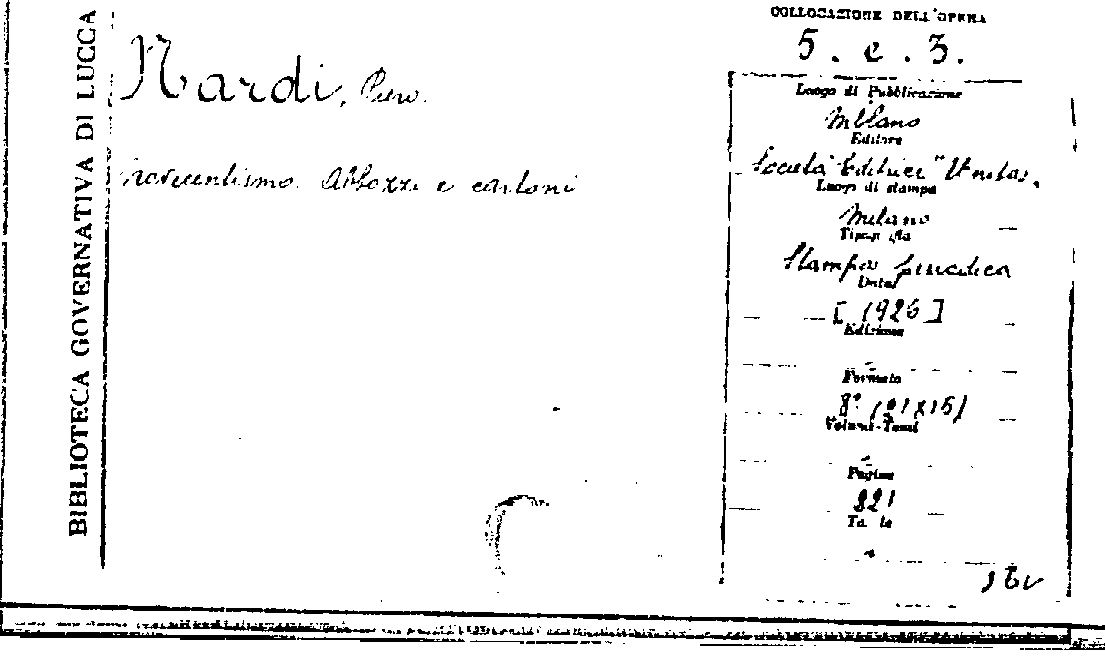 BIBLIOTECA GOVERNATIVA DI LUCCA
Nardi, Piero.
Novecentismo. Abbozzi e cartoni
COLLOCAZIONE DELL'OPERA
5. e. 3.
Luogo di Pubblicazione
Milano
Editore
Società Editrice "Unitas"
Luogo di stampa
Milano
Tipografia
Stampa
Data
[1926]
Edizione
Formato
8° (21x15)
Volumi-Tomi
Pagine
221
Tavole